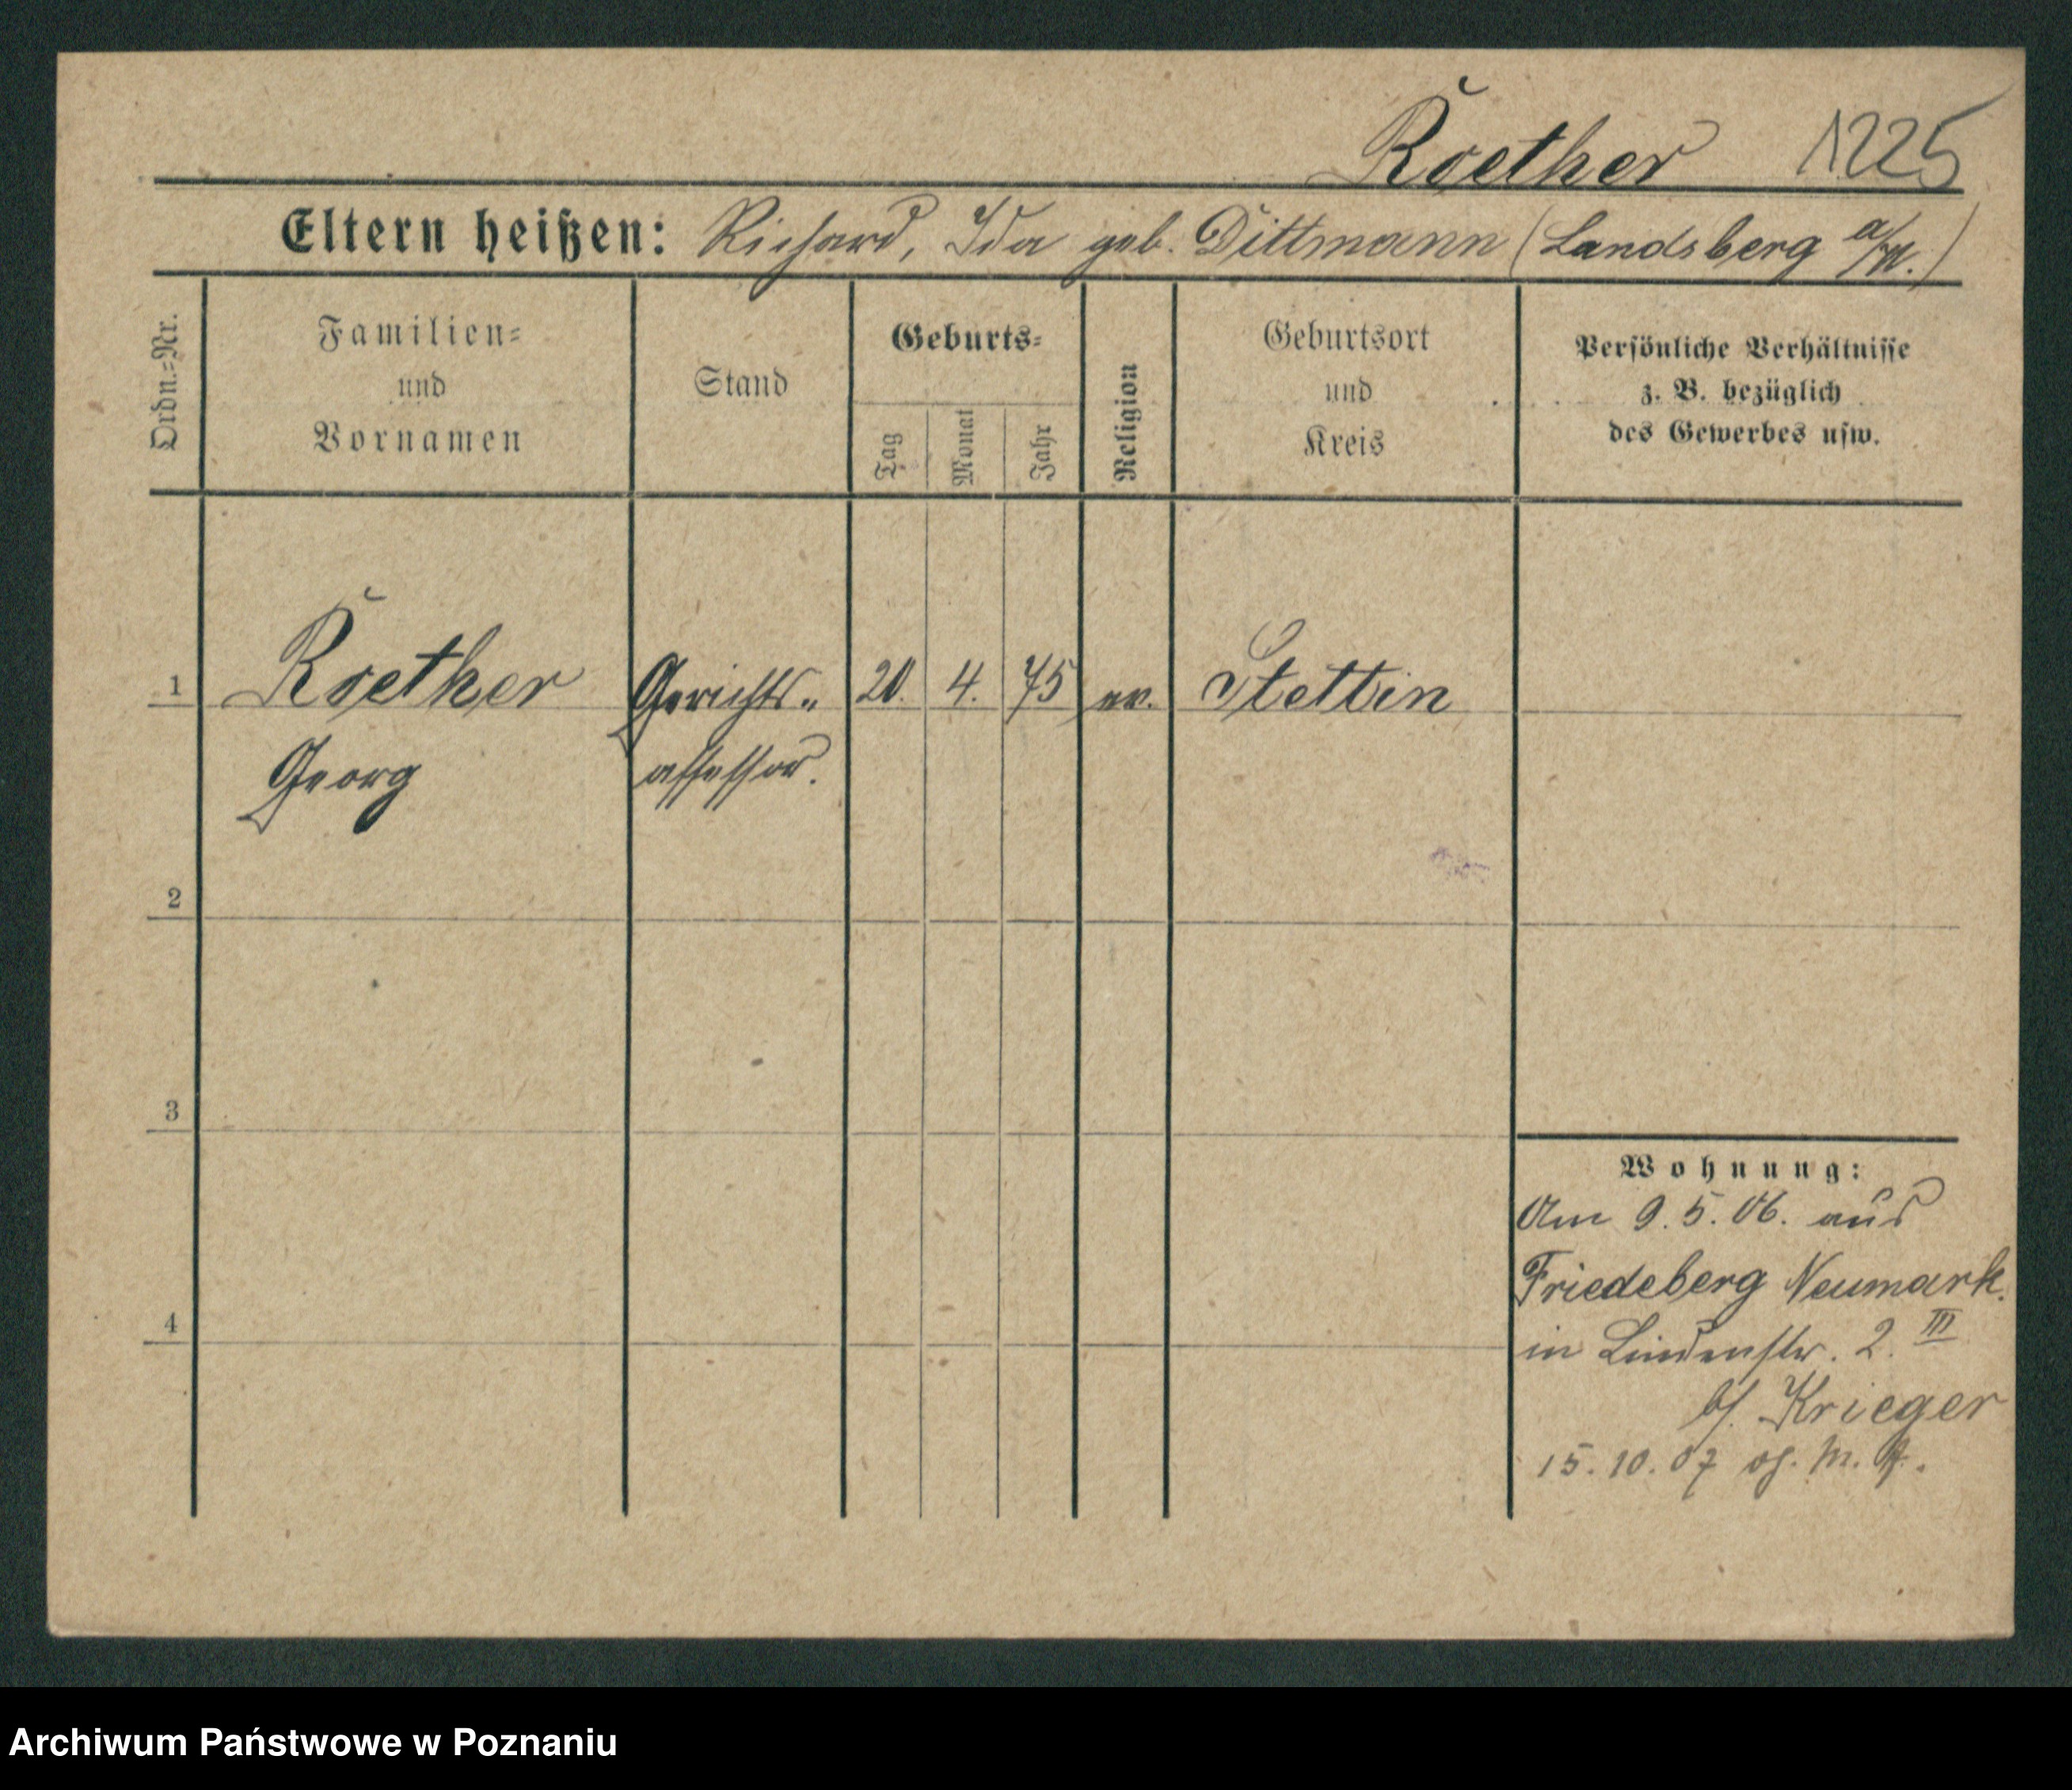 Roether 1225
Eltern heißen: Richard, Ida geb. Dittmann (Landsberg a/W.)
Ordn.=Nr.
Familien=
und
Vornamen
Stand
Geburts=
Tag
Monat
Jahr
Religion
Geburtsort
und
Kreis
Persönliche Verhältnisse
z. B. bezüglich
des Gewerbes usw.
1 Roether Gerichts= 20. 4. 75 ev. Stettin
Georg assessor.
2
3
4
Wohnung:
Am 9.5.06. aus
Friedeberg Neumark.
in Lindenstr. 2. III
b/. Krieger
15.10.07
Archiwum Państwowe w Poznaniu